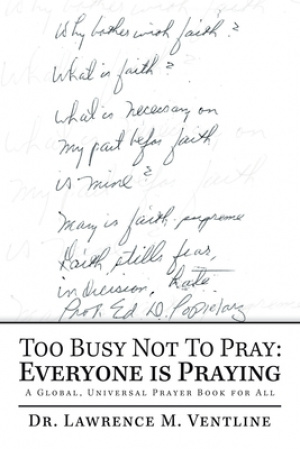 Why bother with faith?
What is faith?
what is necessary on
my part before faith
is mine?
Mary is faith supreme
Faith stills fear,
indecision,
Prof. Ed D.
TOO BUSY NOT TO PRAY:
EVERYONE IS PRAYING
A GLOBAL, UNIVERSAL PRAYER BOOK FOR ALL
DR. LAWRENCE M. VENTLINE